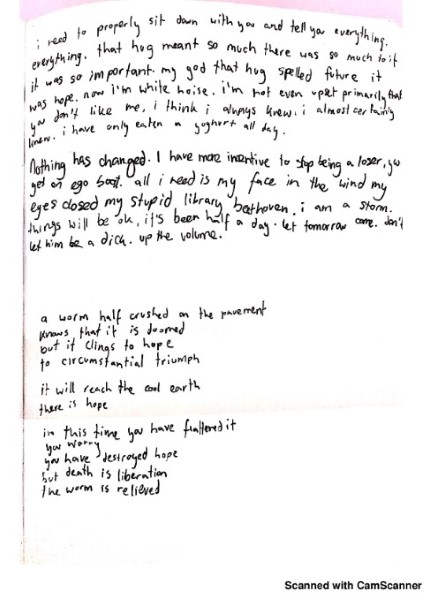 i need to properly sit down with you and tell you everything.
everything. that hug meant so much there was so much to it
it was so important. my god that hug spelled future it
was hope. now i'm white noise. i'm not even upset primarily that
you don't like me, i think i always knew. i almost certainly
knew. i have only eaten a yoghurt all day.
Nothing has changed. I have more incentive to stop being a loser, you
get an ego boost. all i need is my face in the wind my
eyes closed my stupid library beethoven. i am a storm.
things will be ok, it's been half a day. let tomorrow come. don't
let him be a dick. up the volume.
a worm half crushed on the pavement
knows that it is doomed
but it clings to hope
to circumstantial triumph
it will reach the cool earth
there is hope
in this time you have it
you worry
you have destroyed hope
but death is liberation
the worm is relieved
Scanned with CamScanner